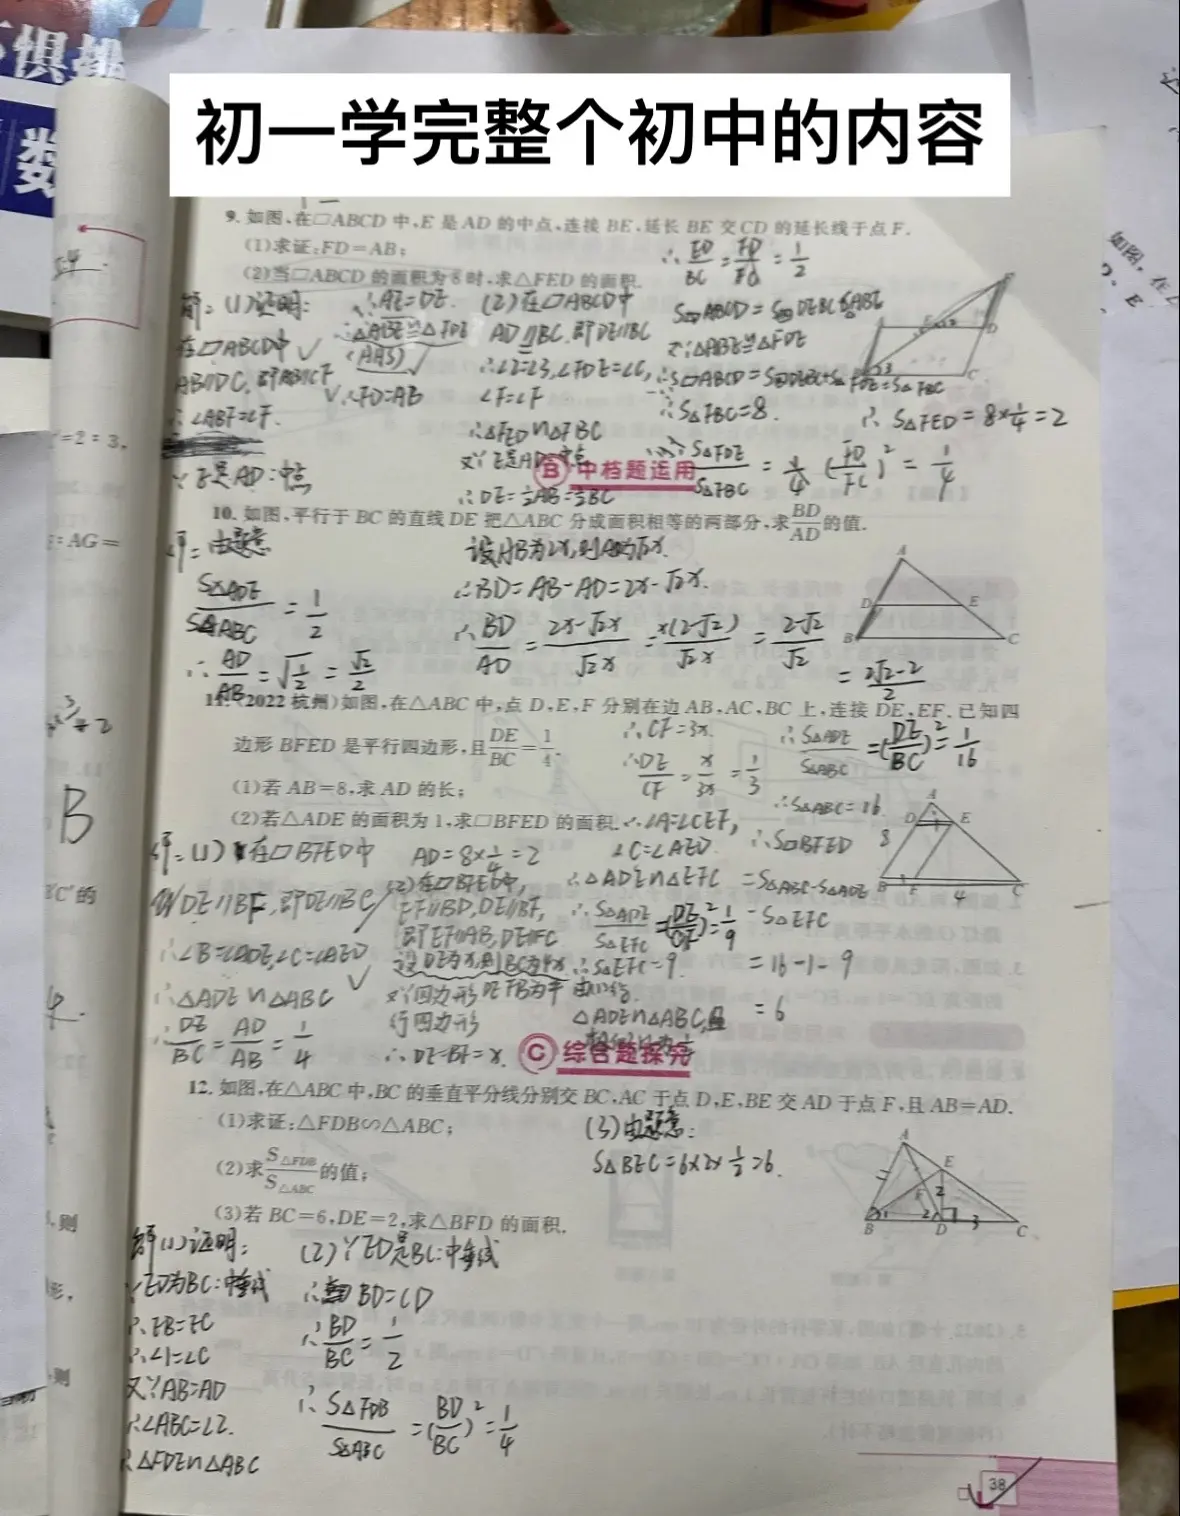 初一学完整个初中的内容
惧
数
9. 如图,在□ABCD 中,E 是 AD 的中点,连接 BE,延长 BE 交 CD 的延长线于点 F.
(1)求证:FD=AB;
(2)当□ABCD 的面积为 8 时,求△FED 的面积.
∴ ED/BC = FD/FC = 1/2
(1)证明:
在□ABCD中
AB∥DC, 即AB∥CF
∴∠ABF=∠F.
∵E是AD:中点
∴AE=DE.
∴△ABE≌△FDE
(AAS)
∴FD=AB
(2)在□ABCD中
AD∥BC.即DE∥BC
∴∠2=∠3,∠FDE=∠C,
∠F=∠F
∴△FED∽△FBC
又∵E是AD中点
∴DE=½AB=½BC
又∵△ABE≌△FDE
∴S△FBC=8.
S△FDE/S△FBC = (FD/FC)² = 1/4
∴ S△FED=8×1/4=2
B 中档题运用
10. 如图,平行于 BC 的直线 DE 把△ABC 分成面积相等的两部分,求BD/AD的值.
由题意
S△ADE/S△ABC = 1/2
∴ AD/AB = √1/2 = √2/2
设AB为2x,则AD为√2x.
∴BD=AB-AD=2x-√2x.
∴ BD/AD = 2x-√2x/√2x = x(2-√2)/√2x = 2-√2/√2
= 2√2-2/2
11. (2022 杭州)如图,在△ABC 中,点 D,E,F 分别在边 AB,AC,BC 上,连接 DE,EF.已知四
边形 BFED 是平行四边形,且DE/BC=1/4.
(1)若 AB=8,求 AD 的长;
(2)若△ADE 的面积为 1,求□BFED 的面积.
(1) 在□BFED中
DE∥BF,即DE∥BC
∴∠B=∠ADE,∠C=∠AED
∴△ADE∽△ABC
∴ DE/BC = AD/AB = 1/4
AD=8×1/4=2
(2)在□BFED中,
EF∥BD,DE∥BF,
即EF∥AB,DE∥FC
设DE为x,则BC为4x
又∵四边形DEFB为平
行四边形
∴DE=BF=x.
∴CF=3x.
∴ DE/CF = x/3x = 1/3
∵∠A=∠CEF,
∠C=∠AED.
∴△ADE∽△EFC
∴ S△ADE/S△EFC = (DE/CF)² = 1/9
∴S△EFC=9.
由(1)得.
△ADE∽△ABC,
∴ S△ADE/S△ABC = (DE/BC)² = 1/16
∴S△ABC=16.
∴S□BFED
=S△ABC-S△ADE
-S△EFC
=16-1-9
=6
C 综合题探究
12. 如图,在△ABC 中,BC 的垂直平分线分别交 BC,AC 于点 D,E,BE 交 AD 于点 F,且 AB=AD.
(1)求证:△FDB∽△ABC;
(2)求S△FDB/S△ABC的值;
(3)若 BC=6,DE=2,求△BFD 的面积.
(3)由题意:
S△BEC=6×2×½=6.
解(1)证明:
∵ED为BC:中垂线
∴EB=EC
∴∠1=∠C
又∵AB=AD
∴∠ABC=∠2.
∴△FDE∽△ABC
(2)∵ED是BC:中垂线
∴BD=CD
∴ BD/BC = 1/2
∴ S△FDB/S△ABC = (BD/BC)² = 1/4
38
=2:3,
:AG=
B
则
形,
则